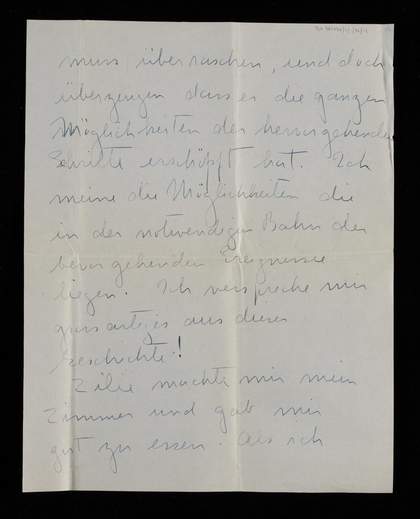 muss überraschen, und doch
überzeugen dass es die ganzen
Möglichkeiten der hervorgehenden
Schritte erschöpft hat. Ich
meine die Möglichkeiten die
in der notwendigen Bahn der
hervorgehenden Ereignisse
liegen. Ich verspreche mir
grossartiges aus dieser
Geschichte!
Zilie machte mir mein
Zimmer und gab mir
gut zu essen. Als ich